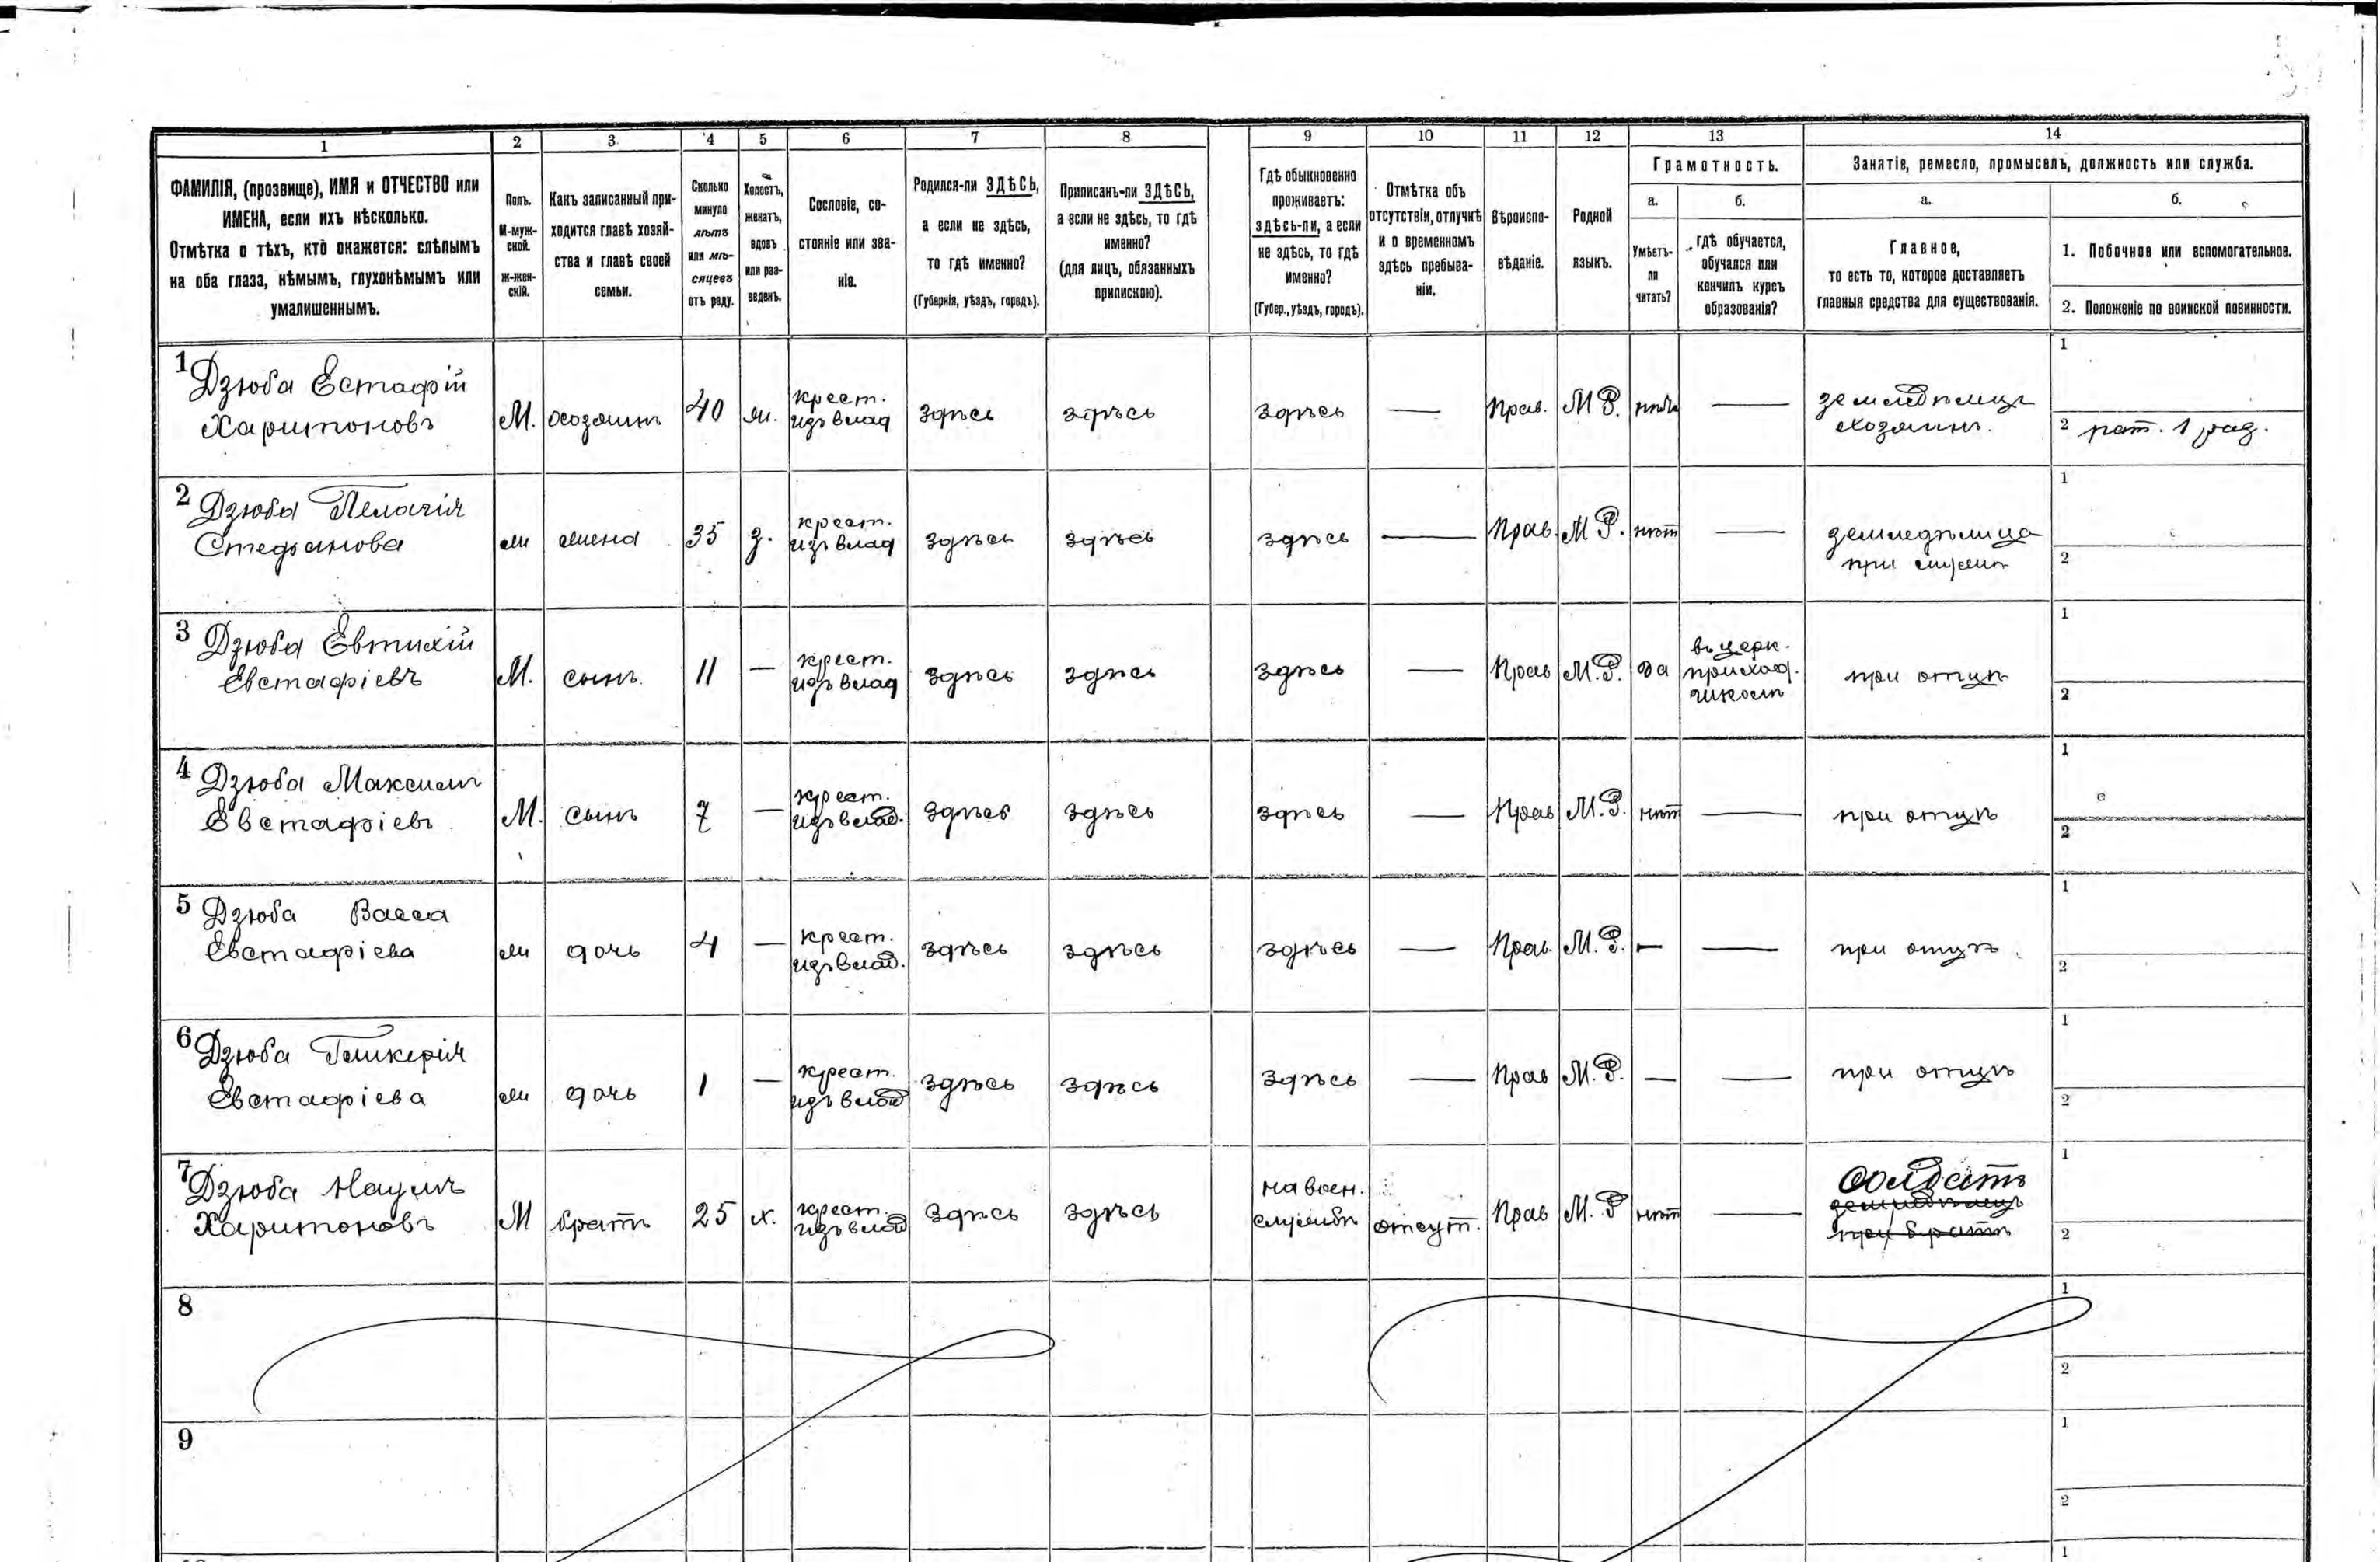 1 2 3. 4 5 6 7 8 9 10 11 12 13 14
ФАМИЛІЯ, (прозвище), ИМЯ и ОТЧЕСТВО или
ИМЕНА, если ихъ нѣсколько.
Отмѣтка о тѣхъ, кто окажется: слѣпымъ
на оба глаза, нѣмымъ, глухонѣмымъ или
умалишеннымъ.
Полъ.
М-муж-
ской.
ж-жен-
скій.
Какъ записанный при-
ходится главѣ хозяй-
ства и главѣ своей
семьи.
Сколько
минуло
лѣтъ
или мѣ-
сяцевъ
отъ роду.
Холостъ,
женатъ,
вдовъ
или раз-
веденъ.
Сословіе, со-
стояніе или зва-
ніе.
Родился-ли ЗДѢСЬ,
а если не здѣсь,
то гдѣ именно?
(Губернія, уѣздъ, городъ).
Приписанъ-ли ЗДѢСЬ,
а если не здѣсь, то гдѣ
именно?
(для лицъ, обязанныхъ
припискою).
Гдѣ обыкновенно
проживаетъ:
здѣсь-ли, а если
не здѣсь, то гдѣ
именно?
(Губер., уѣздъ, городъ).
Отмѣтка объ
отсутствіи, отлучкѣ
и о временномъ
здѣсь пребыва-
ніи.
Вѣроиспо-
вѣданіе.
Родной
языкъ.
Грамотность.
а.
Умѣетъ-
ли
читать?
б.
гдѣ обучается,
обучался или
кончилъ курсъ
образованія?
Занятіе, ремесло, промыселъ, должность или служба.
а.
Главное,
то есть то, которое доставляетъ
главныя средства для существованія.
б.
1. Побочное или вспомогательное.
2. Положеніе по воинской повинности.
1 Дзюба Естафій
Харитоновъ
М. хозяинъ 40 ж. крест.
изъ влад здѣсь здѣсь здѣсь — Прав. М Р. нѣтъ — земледѣлецъ
хозяинъ.
1
2 рат. 1 раз.
2 Дзюба Пелагія
Стефанова
ж жена 35 з. крест.
изъ влад здѣсь здѣсь здѣсь — Прав. М Р. нѣт — земледѣлица
при мужѣ
1
2
3 Дзюба Евтихій
Евстафіевъ
М. сынъ. 11 — крест.
изъ влад здѣсь здѣсь здѣсь — Прав М.Р. да въ церк.
приход.
школѣ
при отцѣ
1
2
4 Дзюба Максимъ
Евстафіевъ
М. сынъ 7 — крест.
изъ влад. здѣсь здѣсь здѣсь — Прав М.Р. нѣт — при отцѣ
1
2
5 Дзюба Васса
Евстафіева
ж дочь 4 — крест.
изъ влад. здѣсь здѣсь здѣсь — Прав. М.Р. — — при отцѣ
1
2
6 Дзюба Гликерія
Евстафіева
ж дочь 1 — крест.
изъ влад здѣсь здѣсь здѣсь — Прав М.Р. — — при отцѣ
1
2
7 Дзюба Наумъ
Харитоновъ
М братъ 25 х. крест.
изъ влад здѣсь здѣсь на воен.
службѣ отсут. Прав М.Р нѣт — солдатъ
земледѣлецъ
при братѣ
1
2
8
1
2
9
1
2
1